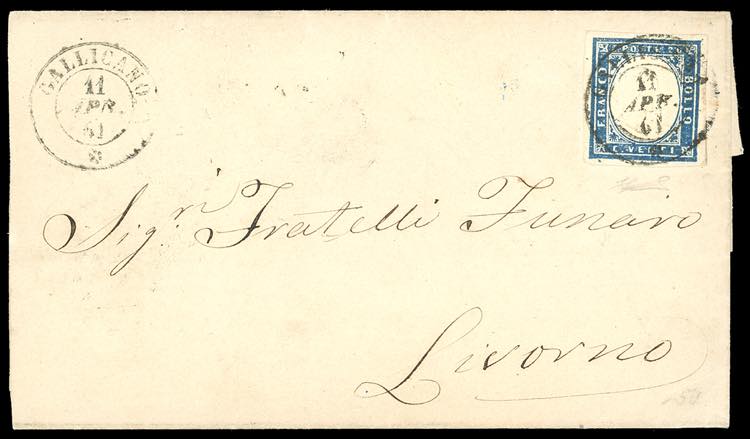 GALLICANO
11
APR.
61
POSTE
FRANCO
BOLLO
C. VENTI
11
APR.
61
Sig.ri Fratelli Funaro
Livorno